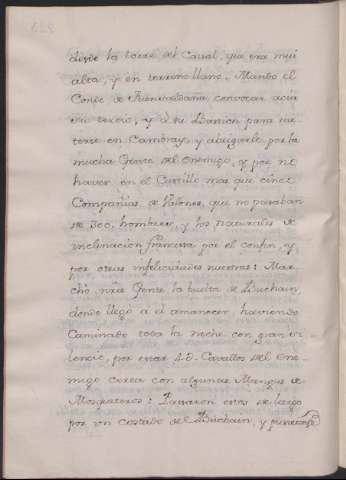 desde la torre del Casal, que era mui
alta, y en terreno llano. Mandó el
Conde de Fuensaldaña convocar acia
su tercio, y a su Baxion para me-
terse en Cambray, y abrigarle por la
mucha Gente del enemigo, y por no
haver en el Castillo mas que cinco
Compañias de Valones, que no pasaban
de 300. hombres, y los naturales de
inclinacion francesa por el confin, y
por otras infelicidades nuestras: Mar-
chó nra Gente la buelta de Buchain,
donde llegó a el amanecer, haviendo
Caminado toda la noche con gran si-
lencio, por estar 4 d. Cavallos del Ene-
migo cerca con algunas Mangas de
Mosqueteros: Pasaron estos de largo
por un costado del Buchain, y